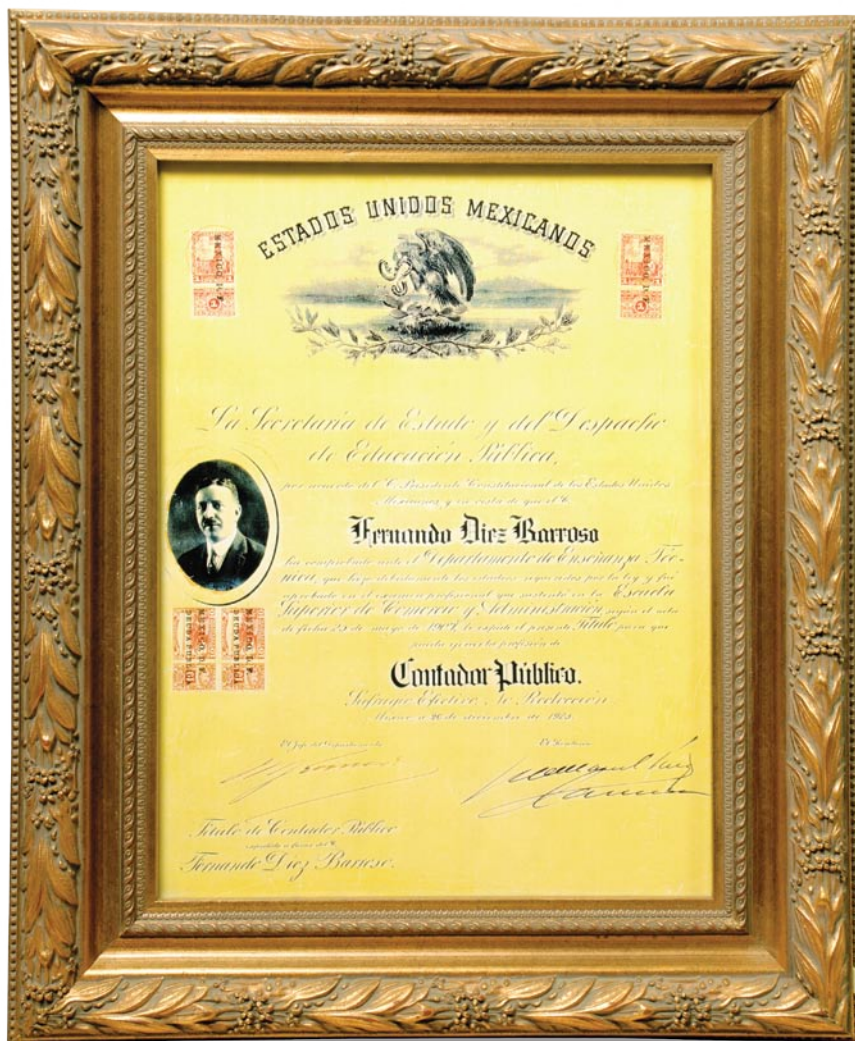 ESTADOS UNIDOS MEXICANOS
MEXICO D.F.
MEXICO D.F.
La Secretaría de Estado y del Despacho
de Educación Pública,
por acuerdo del C. Presidente Constitucional de los Estados Unidos
Mexicanos, y en vista de que el C.
Fernando Diez Barroso
ha comprobado ante el Departamento de Enseñanza Téc-
nica, que hizo debidamente los estudios requeridos por la ley y fué
aprobado en el examen profesional que sustentó en la Escuela
Superior de Comercio y Administración, según el acta
de fecha 25 de mayo de 1907, le expide el presente Título para que
pueda ejercer la profesión de
Contador Público.
Sufragio Efectivo. No Reelección.
México a de diciembre de
MEXICO D. F.
MEXICO D. F.
El Jefe del Departamento
El Secretario
Título de Contador Público
expedido a favor del C.
Fernando Diez Barroso.